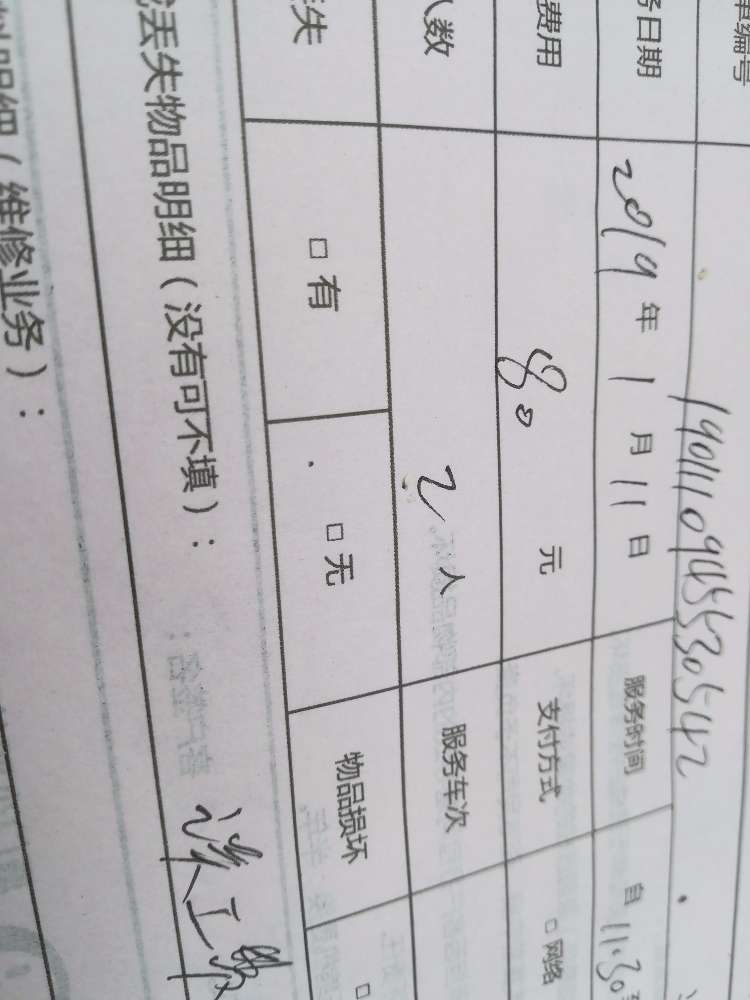 单编号 19011109455530542
务日期 2019年1月11日 服务时间 自11:30
费用 80元 支付方式 □网络
人数 2人 服务车次
失 □有 □无 物品损坏 □
丢失物品明细（没有可不填）： 误工费
明细（维修业务）：